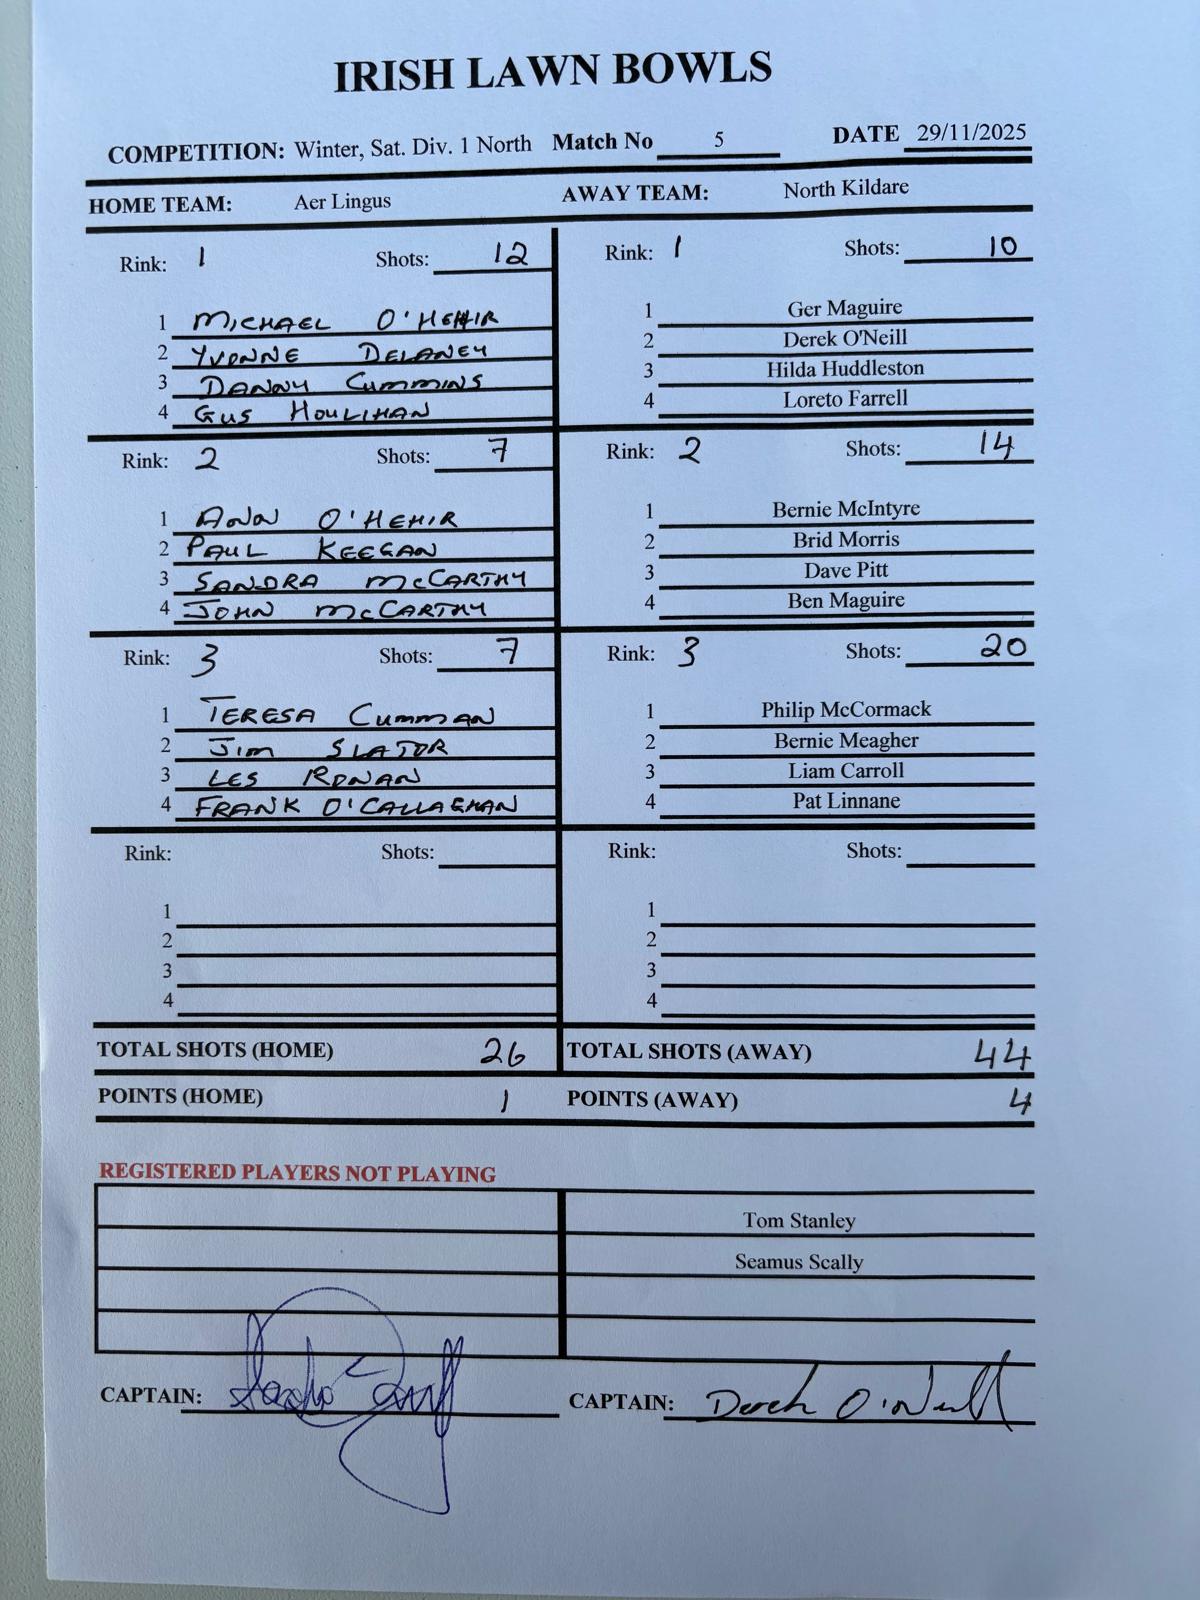 IRISH LAWN BOWLS
COMPETITION: Winter, Sat. Div. 1 North Match No 5 DATE 29/11/2025
HOME TEAM: Aer Lingus AWAY TEAM: North Kildare
Rink: 1 Shots: 12 Rink: 1 Shots: 10
1 MICHAEL O'HEHIR 1 Ger Maguire
2 YVONNE DELANEY 2 Derek O'Neill
3 DANNY CUMMINS 3 Hilda Huddleston
4 GUS HOULIHAN 4 Loreto Farrell
Rink: 2 Shots: 7 Rink: 2 Shots: 14
1 ANN O'HEHIR 1 Bernie McIntyre
2 PAUL KEEGAN 2 Brid Morris
3 SANDRA McCARTHY 3 Dave Pitt
4 JOHN McCARTHY 4 Ben Maguire
Rink: 3 Shots: 7 Rink: 3 Shots: 20
1 TERESA CUMMAN 1 Philip McCormack
2 JIM SLATOR 2 Bernie Meagher
3 LES RONAN 3 Liam Carroll
4 FRANK O'CALLAGHAN 4 Pat Linnane
Rink: Shots: Rink: Shots:
1 1
2 2
3 3
4 4
TOTAL SHOTS (HOME) 26 TOTAL SHOTS (AWAY) 44
POINTS (HOME) 1 POINTS (AWAY) 4
REGISTERED PLAYERS NOT PLAYING
Tom Stanley
Seamus Scally
CAPTAIN: CAPTAIN: Derek O'Neill